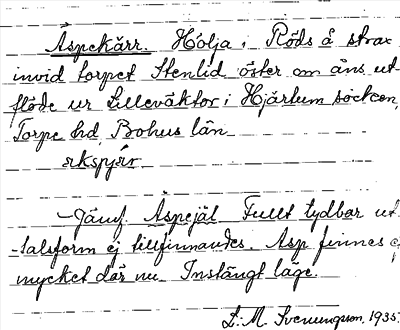 Äspekärr. Hölja i Röds å strax
invid torpet Stenlid öster om åns ut-
flöde ur Lilleväktor i Hjärtum socken,
Torpe hd, Bohus län
- Jämf. Äspejäl Fullt tydbar ut-
talsform ej tillfinnandes. Asp finnes ej
mycket där nu. Instängt läge.
L. M. Svenungsson, 1935.